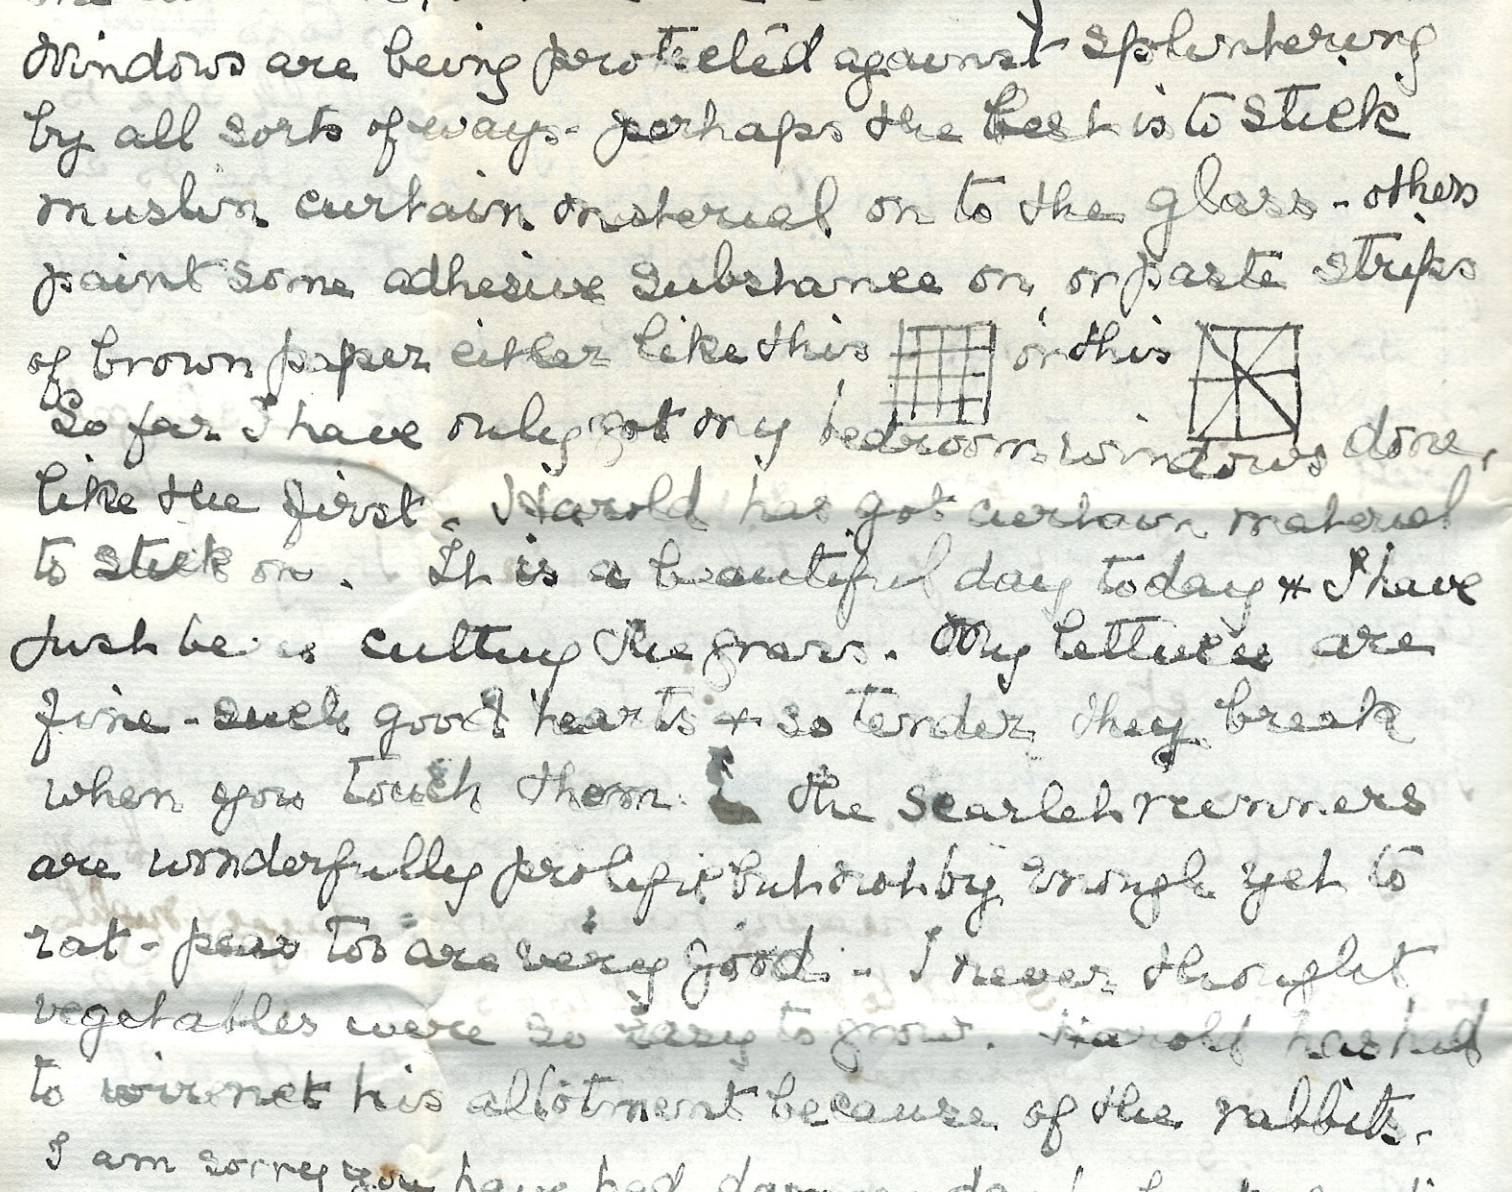 Windows are being protected against splintering
by all sorts of ways - perhaps the best is to stick
muslin curtain material on to the glass - others
paint some adhesive substance on, or paste strips
of brown paper either like this or this
So far I have only got my bedroom windows done,
like the first. Harold has got curtain material
to stick on. It is a beautiful day today & I have
just be cutting the grass. My lettuces are
fine - such good hearts & so tender they break
when you touch them. The scarlet runners
are wonderfully prolific but not big enough yet to
eat - peas too are very good - I never thought
vegetables were so easy to grow. Harold has had
to wirenet his allotment because of the rabbits.
I am sorry you have had